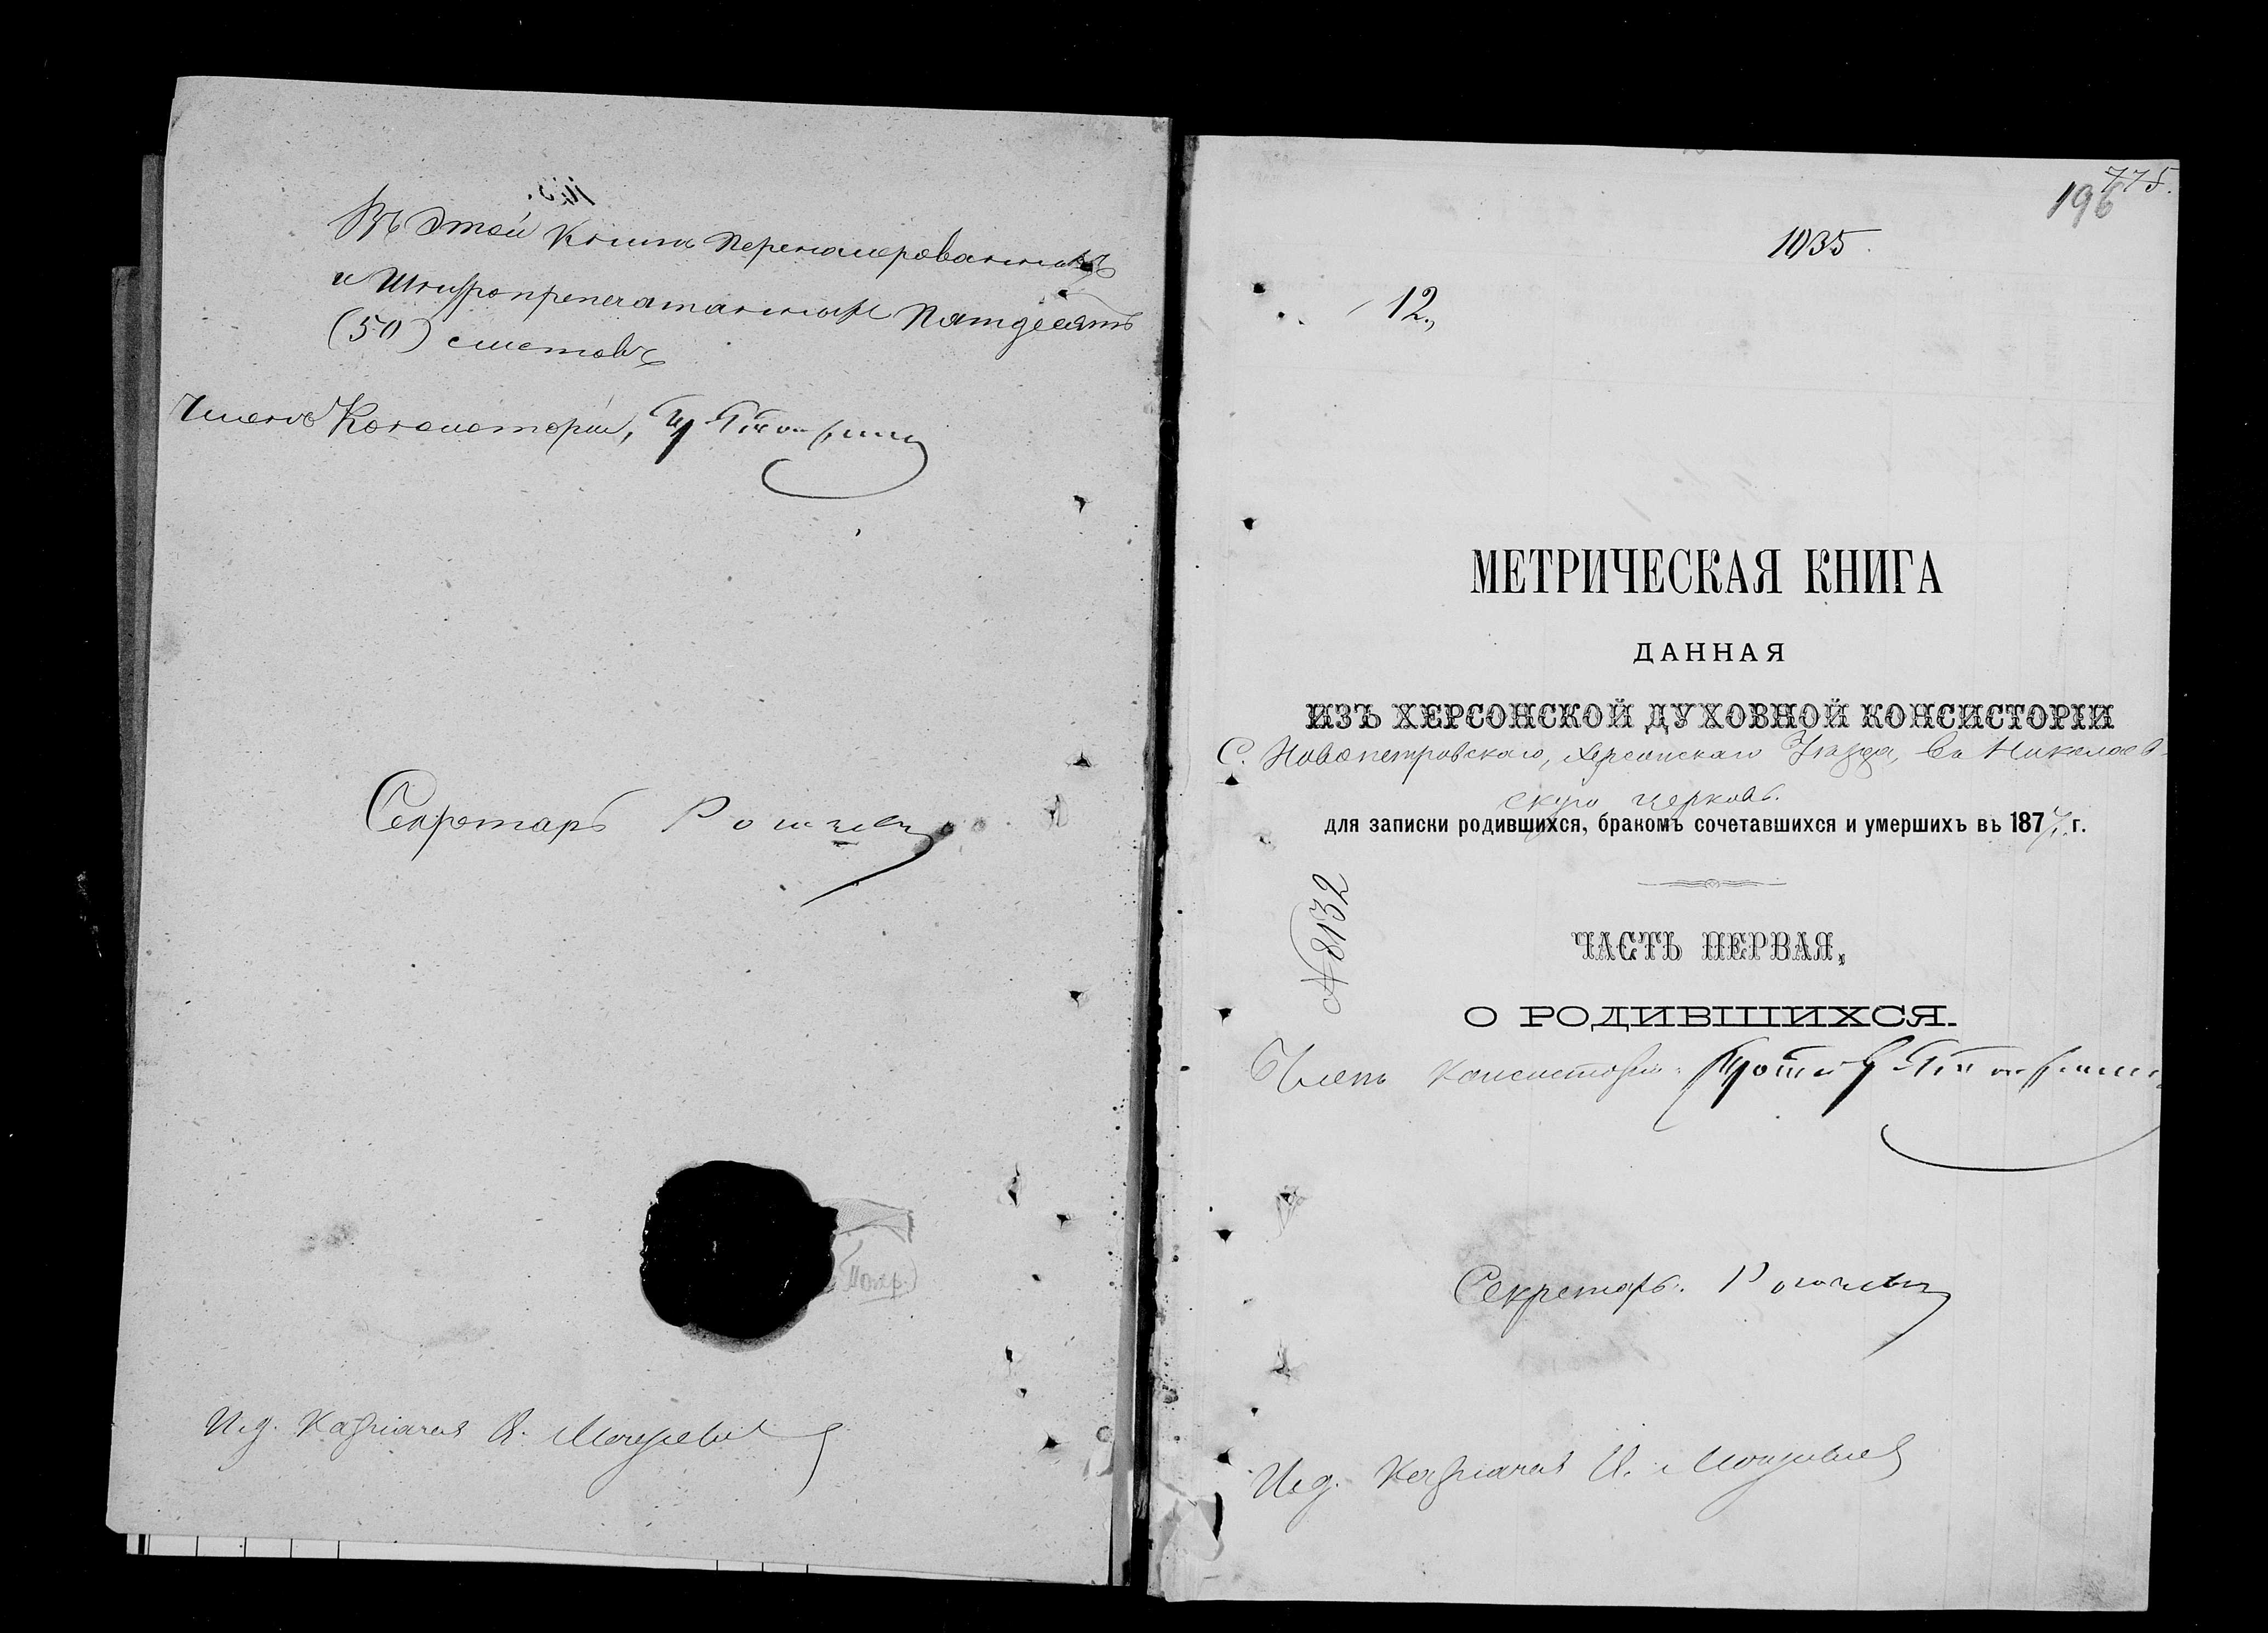 Въ этой книгѣ перенумерованныхъ
и шнуропрепечатанныхъ пятдесятъ
(50) листовъ
Членъ Консисторіи,
Секретарь
И. д. Казначея
775.
196
1035.
12.
МЕТРИЧЕСКАЯ КНИГА
ДАННАЯ
ИЗЪ ХЕРСОНСКОЙ ДУХОВНОЙ КОНСИСТОРІИ
С. Новопетровскаго, Херсонскаго Уѣзда, въ Николаев-
скую церковь.
для записки родившихся, бракомъ сочетавшихся и умершихъ въ 187 г.
№ 8132
ЧАСТЬ ПЕРВАЯ,
О РОДИВШИХСЯ.
Членъ Консисторіи
Секретарь.
И. д. Казначея